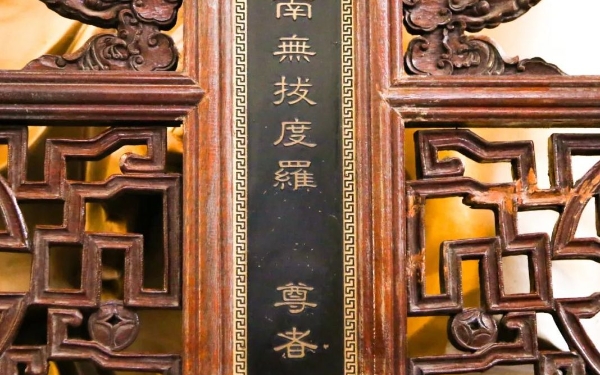 南無拔度羅 尊者